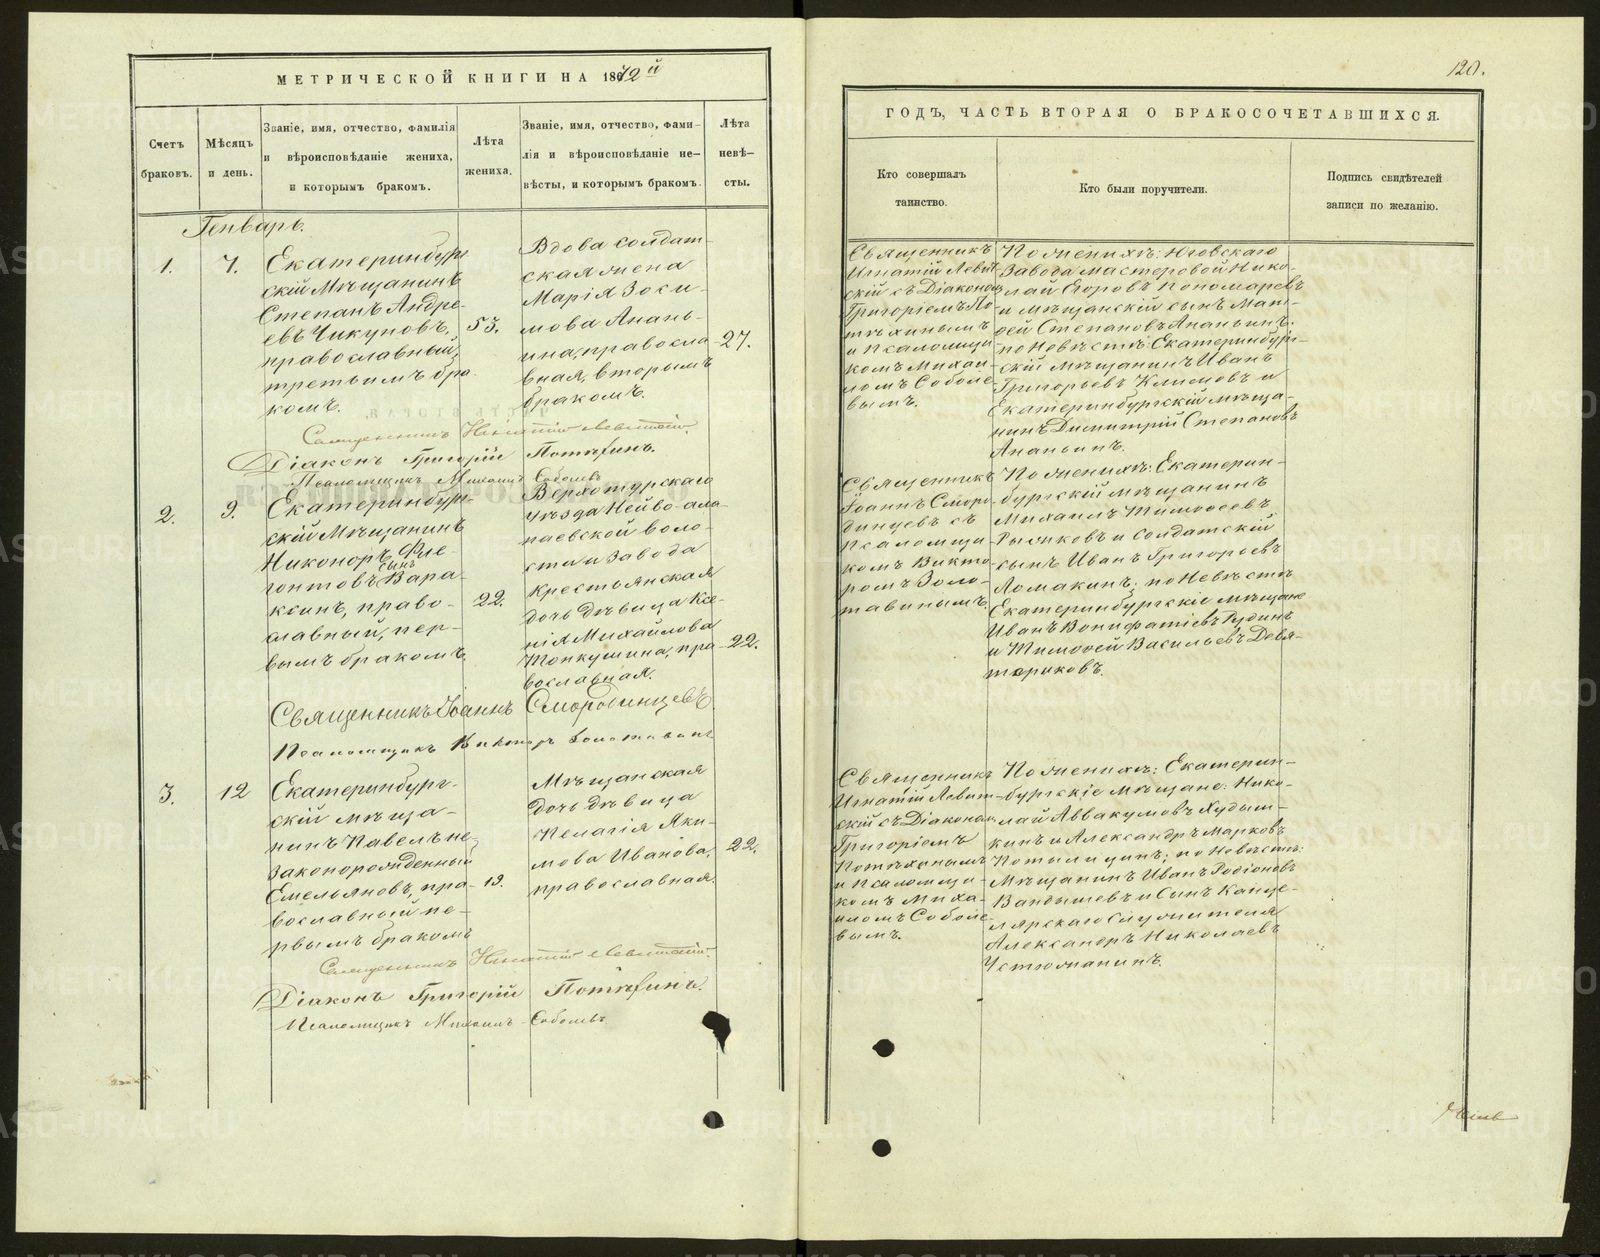 МЕТРИЧЕСКОЙ КНИГИ НА 1872й
Счетъ браковъ.
Мѣсяцъ и день.
Званіе, имя, отчество, фамилія
и вѣроисповѣданіе жениха,
и которымъ бракомъ.
Лѣта жениха.
Званіе, имя, отчество, фами-
лія и вѣроисповѣданіе не-
вѣсты, и которымъ бракомъ.
Лѣта невѣ-
сты.
Генварь.
1.
7.
Екатеринбург
скій Мѣщанинъ
Степанъ Андре-
евъ Чикуновъ,
православный,
третьимъ бра-
комъ.
53.
Вдова солдат-
ская жена
Марія Зоси-
мова Анань-
ина, правосла-
вная, вторымъ
бракомъ.
27.
Священникъ Игнатій Левитскій.
Діаконъ Григорій Потѣхинъ.
Псаломщикъ Михаилъ Соболевъ
2.
9.
Екатеринбург-
скій Мѣщанинъ
Никоноръ Фле-
гонтовъ сынъ Вара-
ксинъ, право-
славный, пер-
вымъ бракомъ.
22.
Верхотурскаго
уѣзда Нейво-ала-
паевской воло-
сти и завода
крестьянская
дочь дѣвица Ксе-
нія Михайлова
Топкушина, пра-
вославная.
22.
Священникъ Іоаннъ Смородинцевъ
Псаломщикъ Викторъ Золотавинъ
3.
12
Екатеринбург-
скій мѣща-
нинъ Павелъ не-
законорожденный
Емельяновъ, пра-
вославный пе-
рвымъ бракомъ
19.
Мѣщанская
дочь дѣвица
Пелагія Яки-
мова Иванова,
православная.
22.
Священникъ Игнатій Левитскій.
Діаконъ Григорій Потѣхинъ.
Псаломщикъ Михаилъ Соболевъ
120.
ГОДЪ, ЧАСТЬ ВТОРАЯ О БРАКОСОЧЕТАВШИХСЯ.
Кто совершалъ
таинство.
Кто были поручители.
Подпись свидѣтелей
записи по желанію.
Священникъ
Игнатій Левит-
скій съ Діакономъ
Григоріемъ По-
тѣхинымъ
и псаломщи-
комъ Михаи-
ломъ Соболе-
вымъ.
По женихѣ: Юговскаго
Завода мастеровой Нико-
лай Егоровъ Пономаревъ
и мѣщанскій сынъ Мат-
ѳей Степановъ Ананьинъ.
по Невѣстѣ: Екатеринбург-
скій мѣщанинъ Иванъ
Григорьевъ Климовъ и
Екатеринбургскій мѣща-
нинъ Димитрій Степановъ
Ананьинъ.
Священникъ
Іоаннъ Сморо-
динцевъ съ
псаломщи-
комъ Викто-
ромъ Золо-
тавинымъ.
По женихѣ: Екатерин-
бургскій мѣщанинъ
Михаилъ Тимоѳеевъ
Рыжковъ и солдатскій
сынъ Иванъ Григорьевъ
Ломакинъ. по Невѣстѣ
Екатеринбургскіе мѣщане
Иванъ Вонифатіевъ Рудинъ
и Тимоѳей Васильевъ Девя-
териковъ.
Священникъ
Игнатій Левит-
скій съ Діакономъ
Григоріемъ
Потѣхинымъ
и псаломщи-
комъ Миха-
иломъ Соболе-
вымъ.
По женихѣ: Екатерин-
бургскіе мѣщане: Нико-
лай Аввакумовъ Худыш-
кинъ и Александръ Марковъ
Потылицинъ; по Невѣстѣ:
Мѣщанинъ Иванъ Родіоновъ
Вандышевъ и Сынъ Канце-
лярскаго Служителя
Александръ Николаевъ
Устюжанинъ.